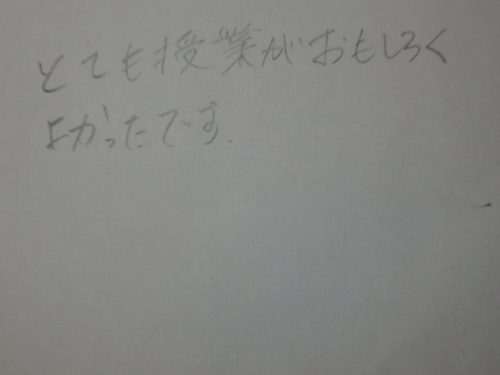 とても授業がおもしろく
よかったです.